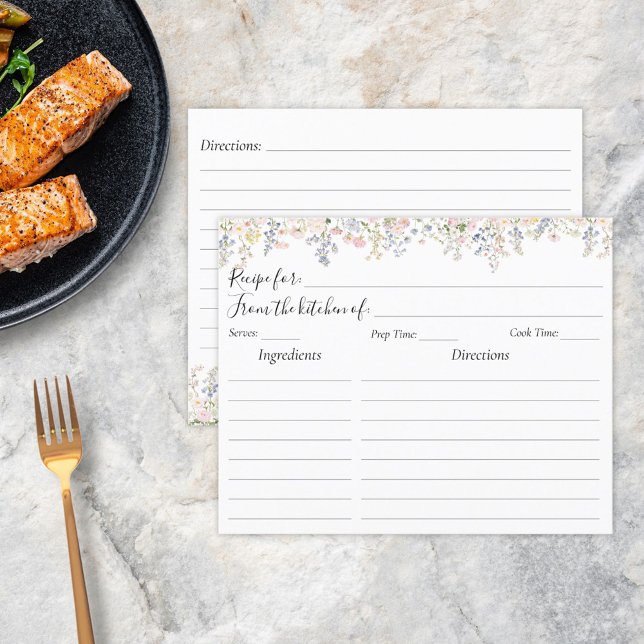 Directions:
Recipe for:
From the kitchen of:
Serves: Prep Time: Cook Time:
Ingredients Directions